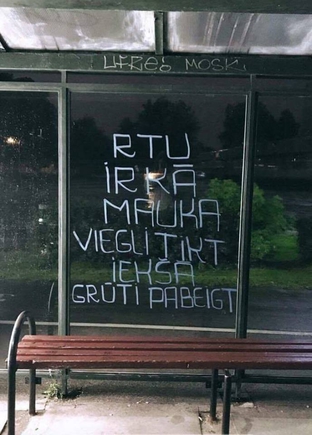 RTU
IR KĀ
MAUKA
VIEGLI TIKT
IEKŠĀ
GRŪTI PABEIGT